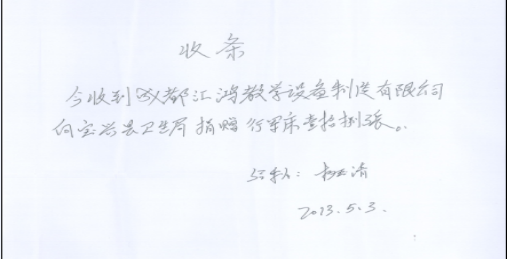 收条
今收到成都汇鸿教学设备制造有限公司
向宝兴县卫生局捐赠行军床壹拾捌张。
经手人：
2013.5.3.